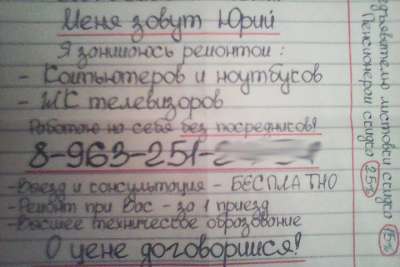 Меня зовут Юрий
Я занимаюсь ремонтом :
- Компьютеров и ноутбуков
- ЖК телевизоров
Работаю на себя без посредников!
8-963-251-
-Выезд и консультация - БЕСПЛАТНО
-Ремонт при Вас - за 1 приезд
-Высшее техническое образование
О цене договоримся!
предъявителю листовки скидка 15%
Пенсионерам скидка 25%